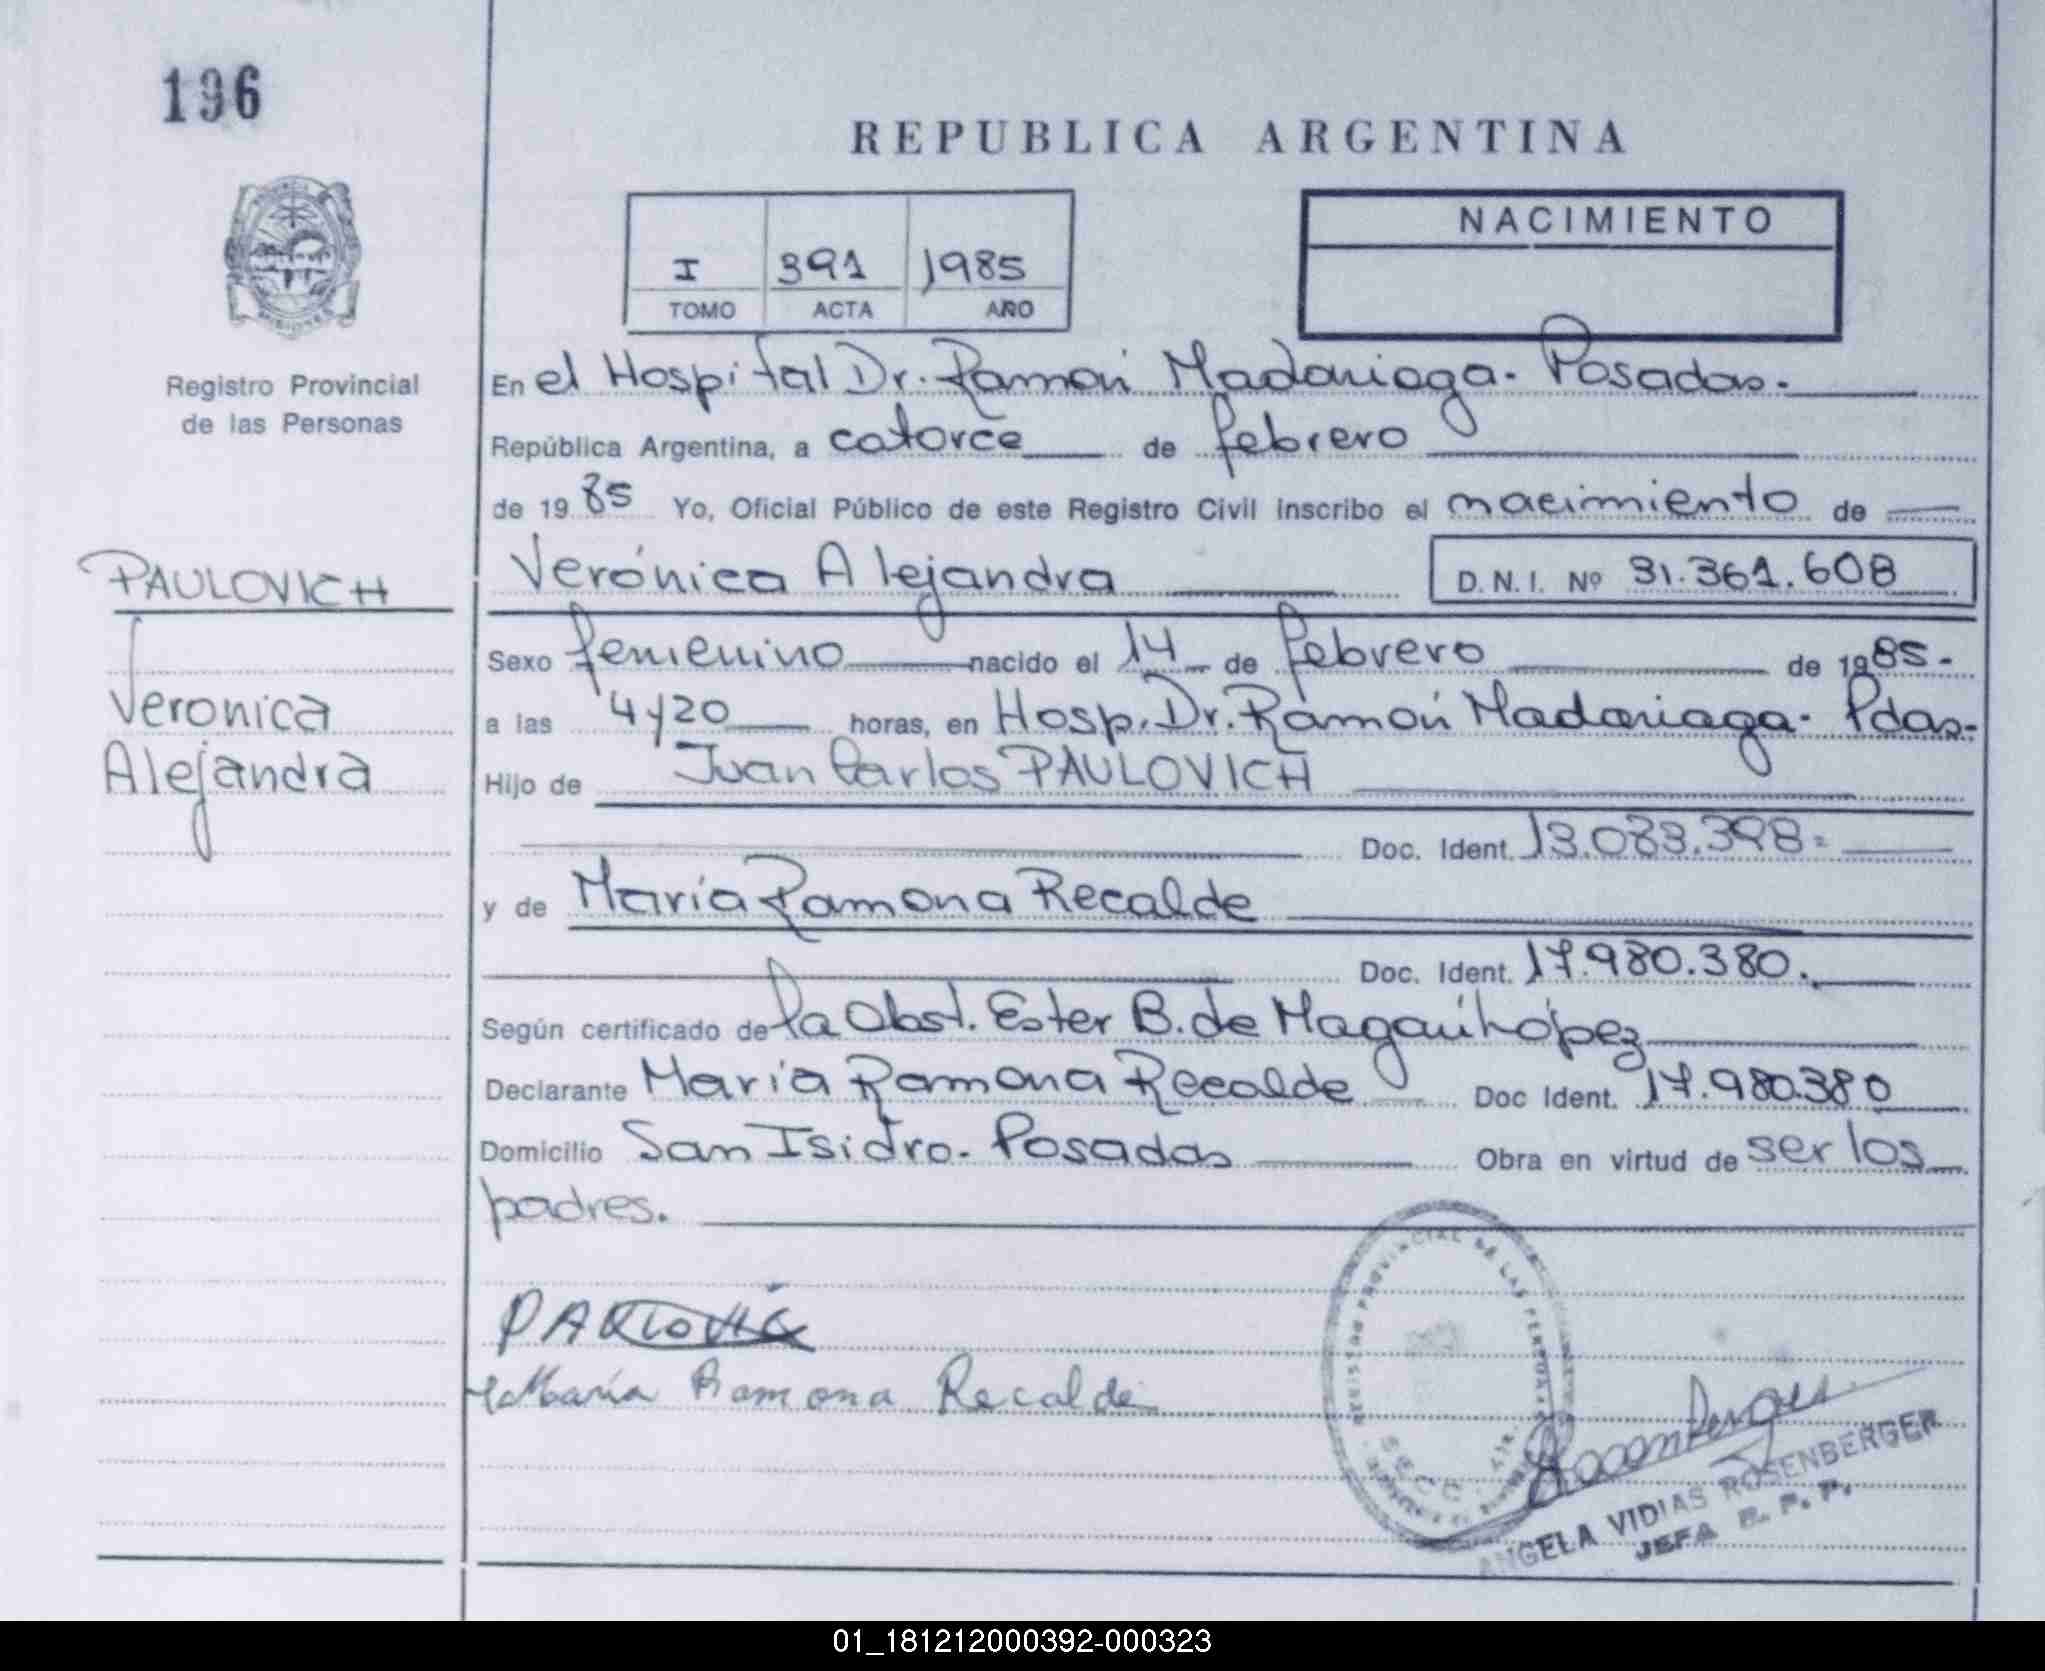 196
REPUBLICA ARGENTINA
NACIMIENTO
I 391 1985
TOMO ACTA AÑO
Registro Provincial
de las Personas
En el Hospital Dr. Ramón Madariaga. Posadas.
República Argentina, a catorce de febrero
de 1985 Yo, Oficial Público de este Registro Civil inscribo el nacimiento de
PAULOVICH
Verónica Alejandra D.N.I. Nº 31.361.608
Sexo femenino nacido el 14 de febrero de 1985.
Veronica
Alejandra
a las 4y20 horas, en Hosp. Dr. Ramón Madariaga. Pdas.
Hijo de Juan Carlos PAULOVICH
Doc. Ident. 13.083.398
y de María Ramona Recalde
Doc. Ident. 17.980.380.
Según certificado de la Obst. Ester B. de López
Declarante María Ramona Recalde Doc Ident. 17.980380
Domicilio San Isidro. Posadas Obra en virtud de ser los
padres.
María Ramona Recalde
PROVINCIAL DE LAS PERSONAS
ANGELA VIDIAS ROSENBERGER
JEFA R. P. P.
01_181212000392-000323